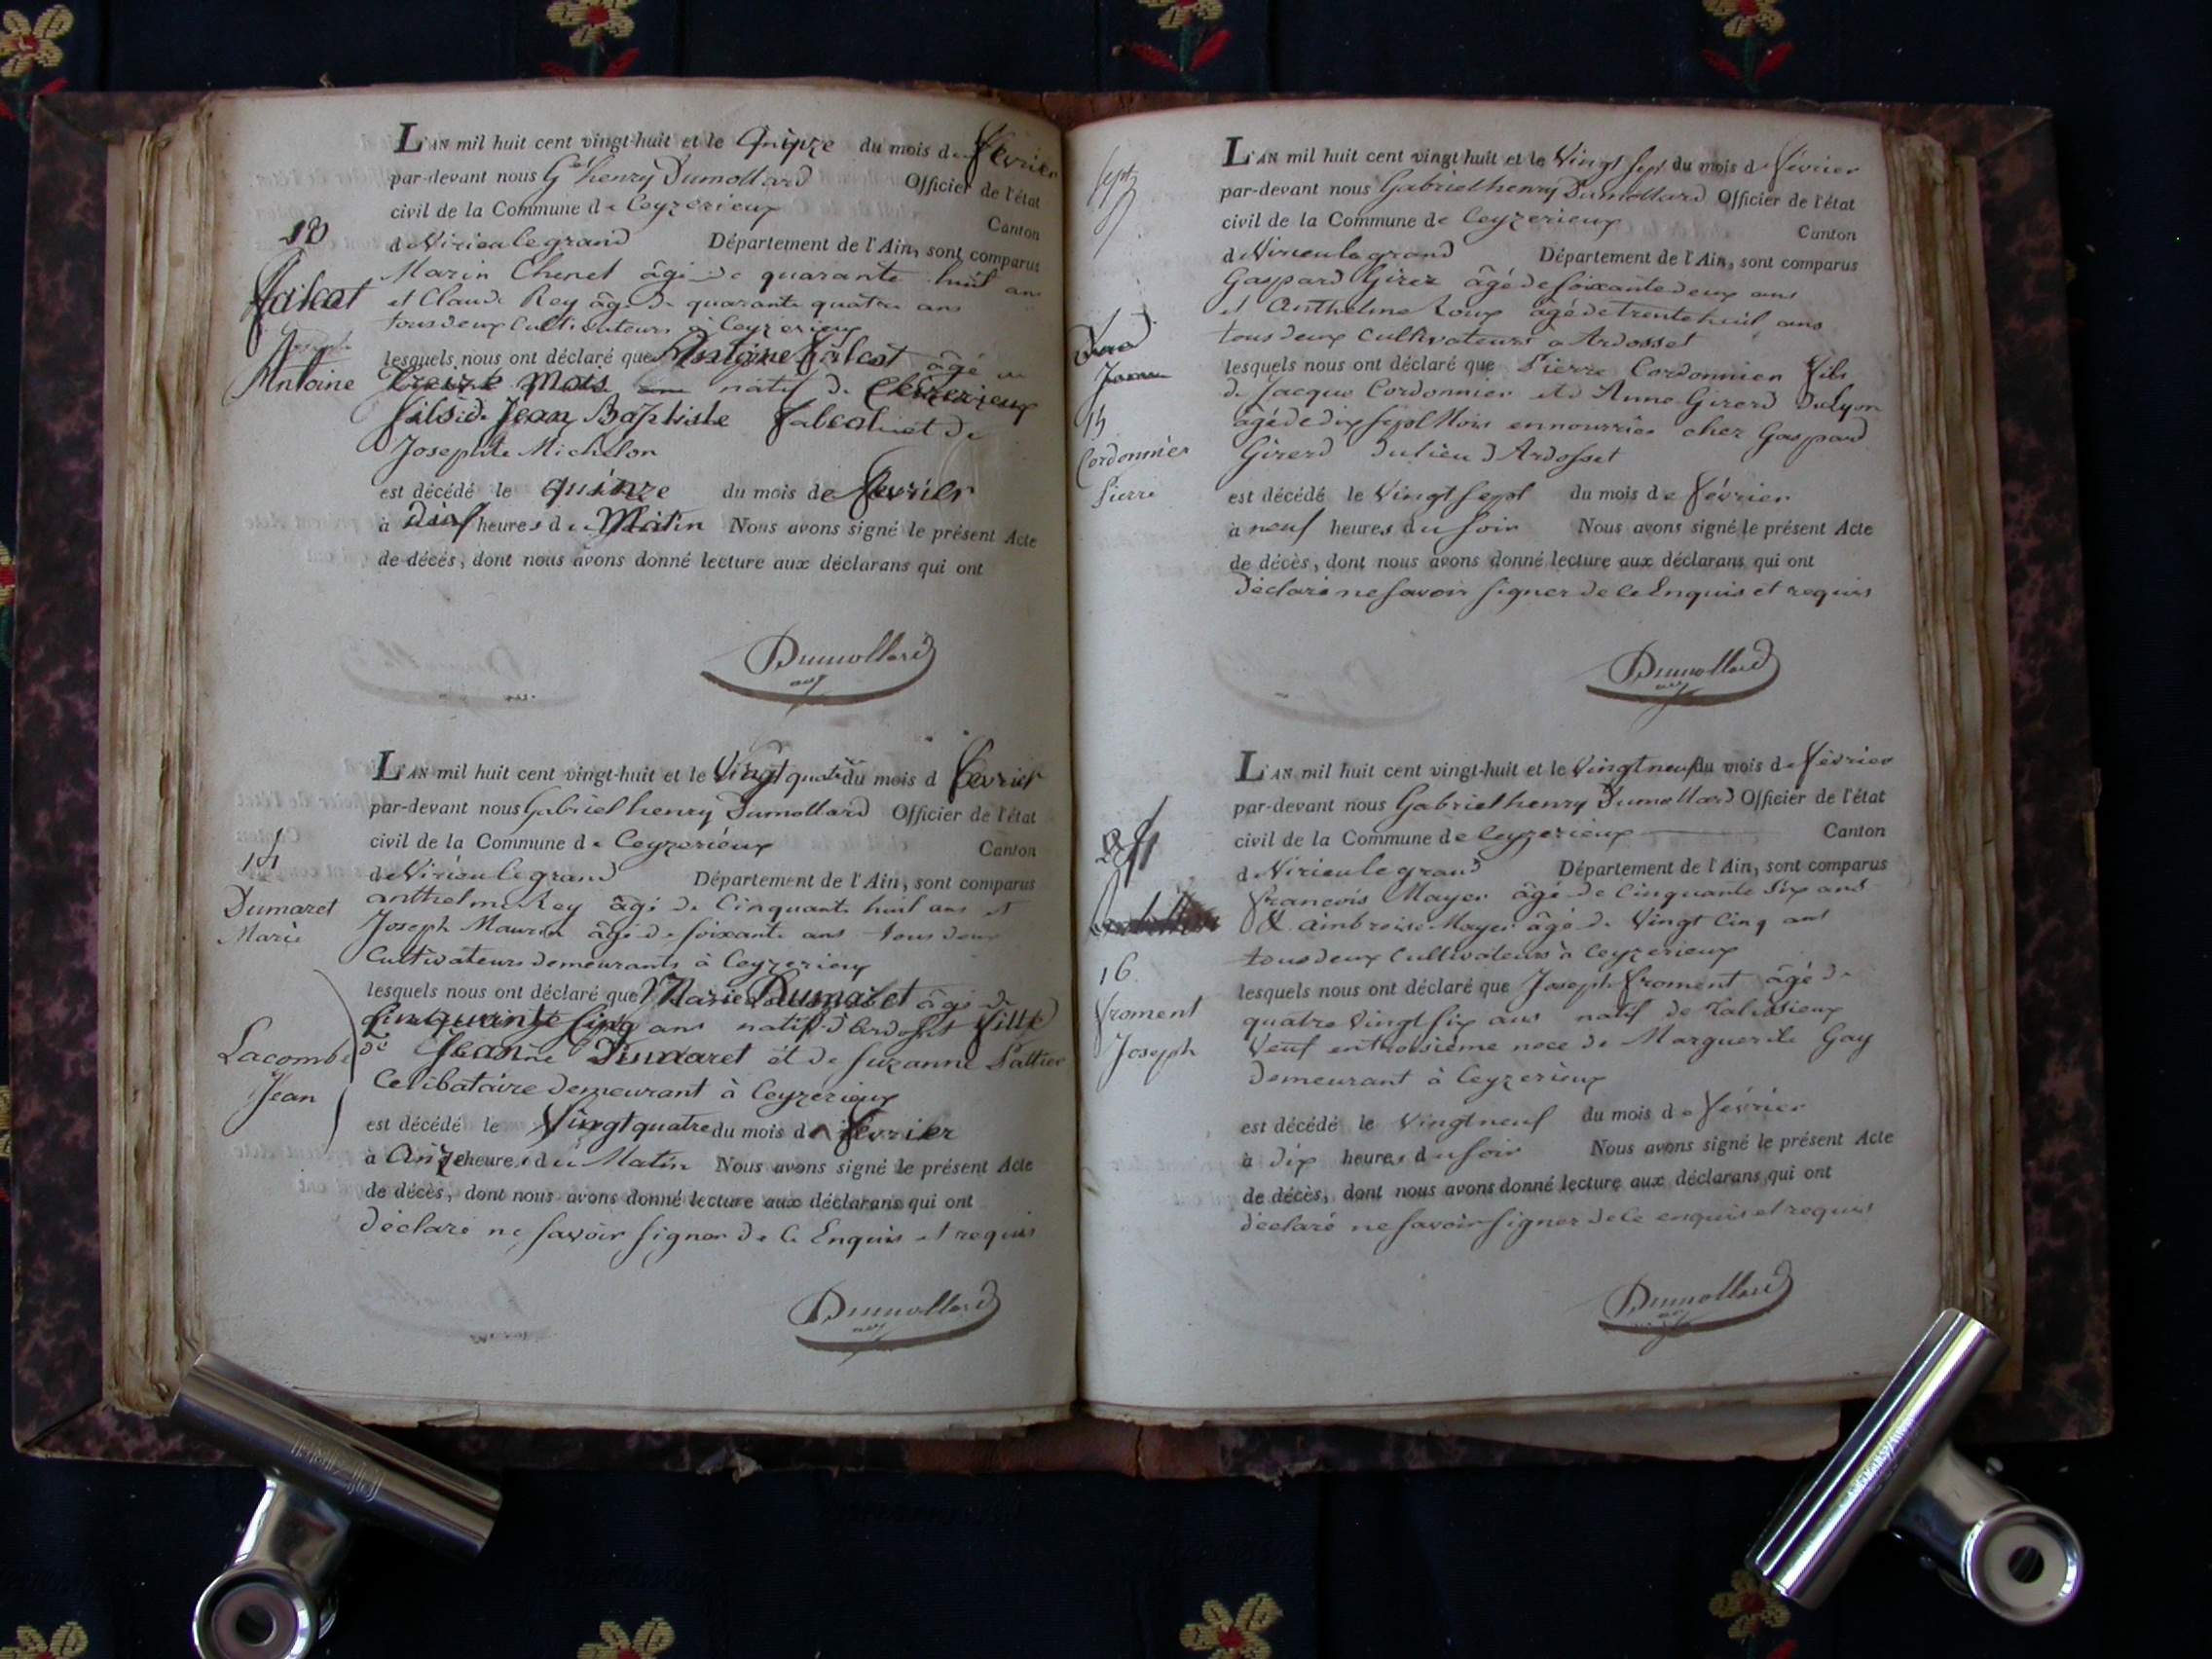 L'AN mil huit cent vingt-huit et le Quinze du mois de fevrier
par-devant nous G^el henry Dumollard Officier de l'état
civil de la Commune de Ceyzerieux Canton
de Virieu le grand Département de l'Ain, sont comparus
Marin Chenet âgé de quarante huit ans
et Claude Rey âgé de quarante quatre ans
tous deux Cultivateurs à Ceyzerieux
lesquels nous ont déclaré que Antoine falcot âgé
treize Mois natif de Ceyzerieux
fils de Jean Baptiste falcot et de
Josephte Michelon
est décédé le quinze du mois de fevrier
à dix heures du Matin Nous avons signé le présent Acte
de décès, dont nous avons donné lecture aux déclarans qui ont
Dumollard
13
falcot
Antoine
L'AN mil huit cent vingt-huit et le Vingt quatre du mois d fevrier
par-devant nous Gabriel henry Dumollard Officier de l'état
civil de la Commune de Ceyzerieux Canton
de Virieu le grand Département de l'Ain, sont comparus
anthelme Rey âgé de Cinquante huit ans et
Joseph âgé de soixante ans tous deux
Cultivateurs demeurants à Ceyzerieux
lesquels nous ont déclaré que Marie Dumaret âgé de
Cinquante Cinq ans natif d'ardosset fille
de Jeanne Dumaret et de Suzanne
Celibataire demeurant à Ceyzerieux
est décédé le Vingt quatre du mois de fevrier
à Onze heures du Matin Nous avons signé le présent Acte
de décès, dont nous avons donné lecture aux déclarans qui ont
déclaré ne savoir signer de Ce Enquis et requis
Dumollard
14
Dumaret
Marie
Lacombe
Jean
L'AN mil huit cent vingt-huit et le Vingt sept du mois de février
par-devant nous Gabriel henry Dumollard Officier de l'état
civil de la Commune de Ceyzerieux Canton
de Virieu le grand Département de l'Ain, sont comparus
Gaspard Girer âgé de soixante deux ans
et Anthelme Roux âgé de trente huit ans
tous deux cultivateurs a Ardosset
lesquels nous ont déclaré que Pierre Cordonnier fils
de Jacque Cordonnier et d'Anne Girerd De Lyon
âgé de dix sept Mois en nourrice chez Gaspard
Girerd du lieu d'Ardosset
est décédé le Vingt sept du mois de février
à neuf heures du soir Nous avons signé le présent Acte
de décès, dont nous avons donné lecture aux déclarans qui ont
déclaré ne savoir signer de Ce Enquis et requis
Dumollard
15
Cordonnier
Pierre
L'AN mil huit cent vingt-huit et le Vingt neuf du mois de février
par-devant nous Gabriel henry Dumollard Officier de l'état
civil de la Commune de Ceyzerieux Canton
de Virieu le grand Département de l'Ain, sont comparus
francois Mayer âgé de Cinquante Six ans
& ambroise Mayer âgé de Vingt Cinq ans
tous deux Cultivateurs à Ceyzerieux
lesquels nous ont déclaré que Joseph froment âgé de
quatre Vingt six ans natif de Talissieux
Veuf en troisième noce de Marguerite Gay
demeurant à Ceyzerieux
est décédé le Vingt neuf du mois de février
à dix heures du soir Nous avons signé le présent Acte
de décès, dont nous avons donné lecture aux déclarans qui ont
déclaré ne savoir signer de Ce enquis et requis
Dumollard
16
froment
Joseph